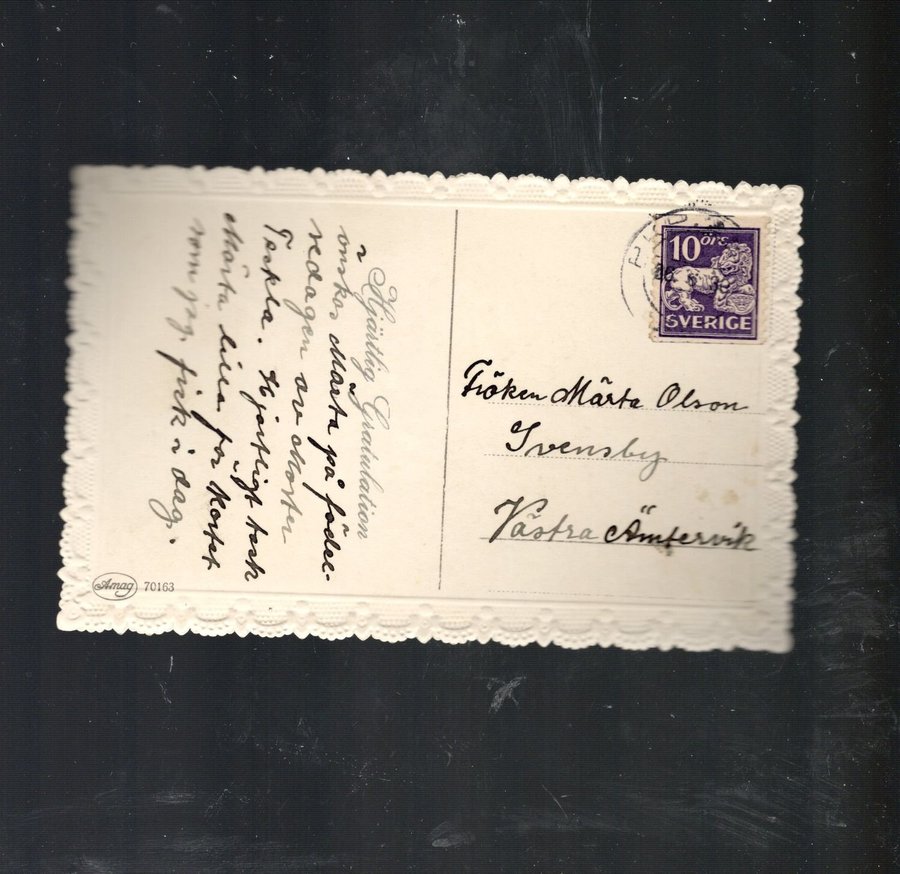 Hjärtlig Gratulation
önskas Märta på födel-
sedagen av Moster
Tekla. Hjertligt tack
Märta lilla för kortet
som jag fick i dag.
Amag 70163
10 öre
SVERIGE
Fröken Märta Olson
Svensby
Västra Ämtervik